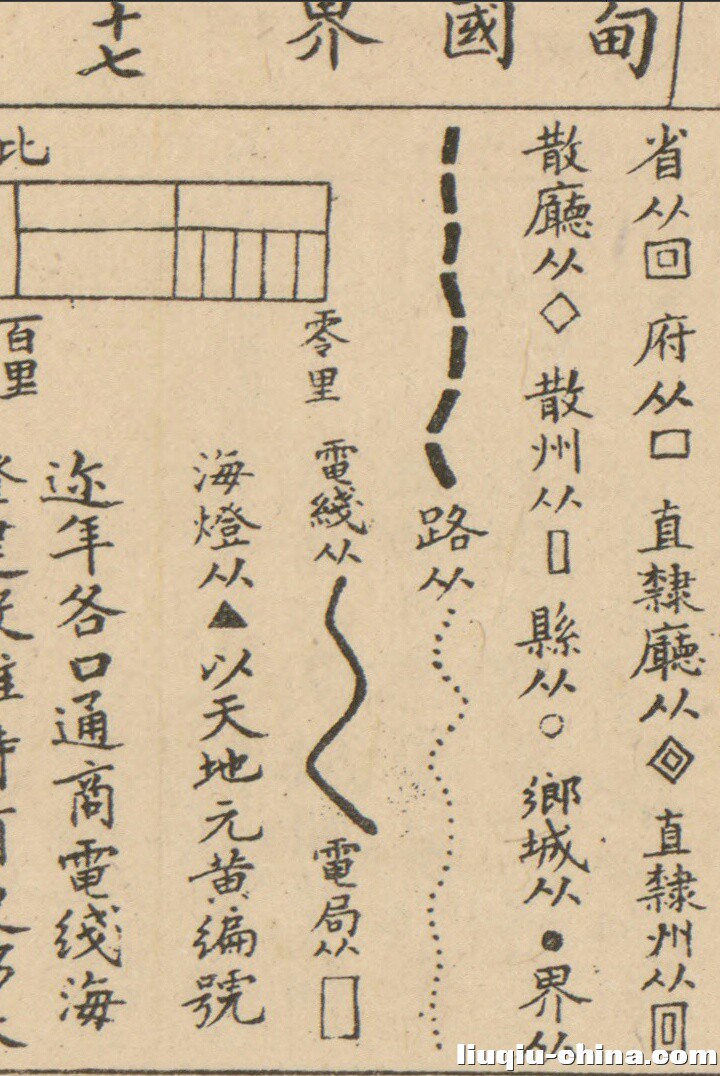 甸
國
界
十七
省从回 府从□ 直隸廳从◈ 直隸州从回
散廳从◇ 散州从▯ 縣从○ 鄉城从● 界从
路从
零里
電綫从
電局从▯
海燈从▲以天地元黄編號
比
百里
迩年各口通商電綫海
liuqiu-china.com